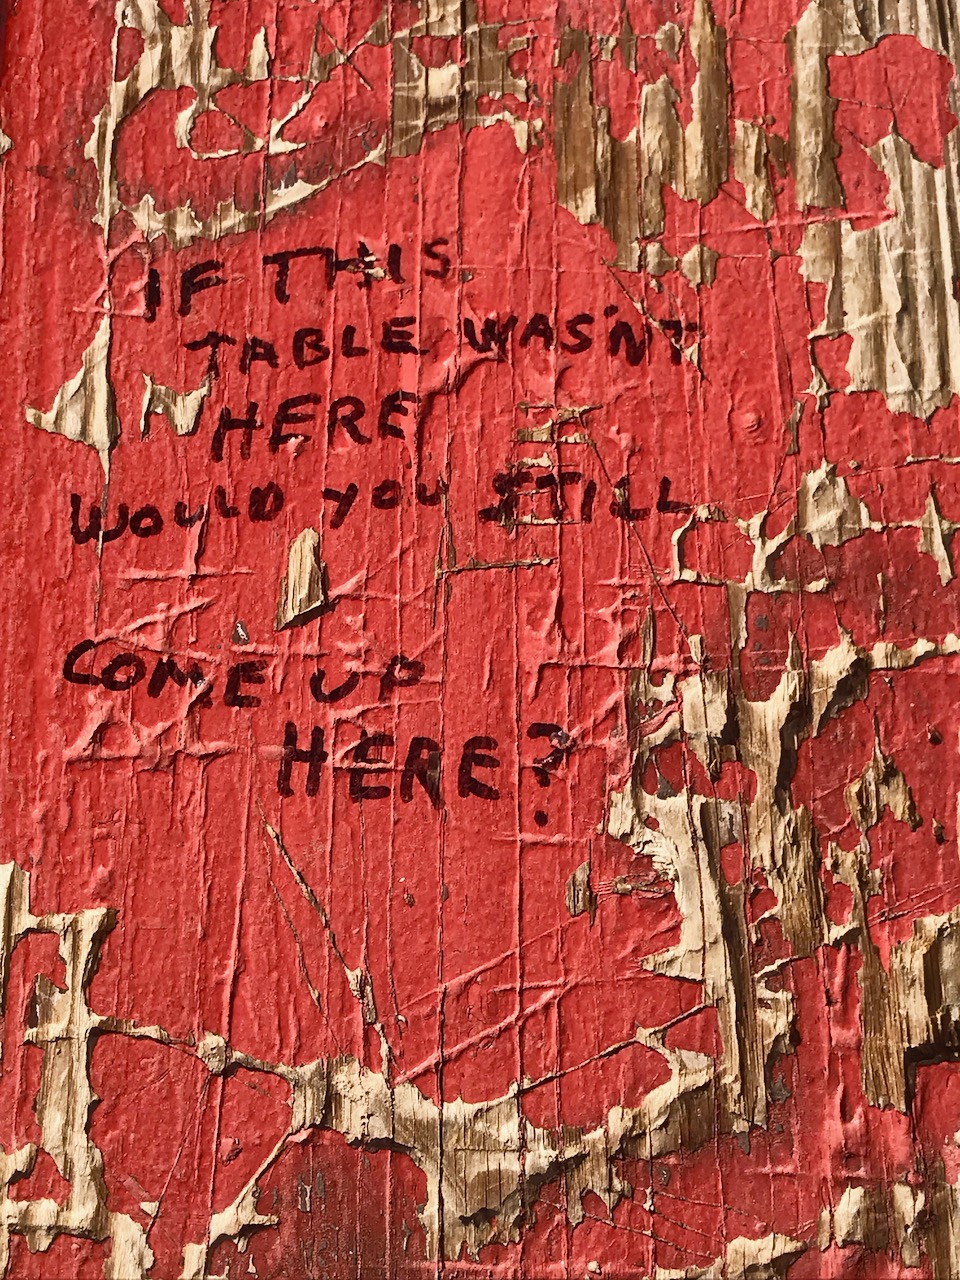 IF THIS
TABLE WASN'T
HERE
WOULD YOU STILL
COME UP
HERE?